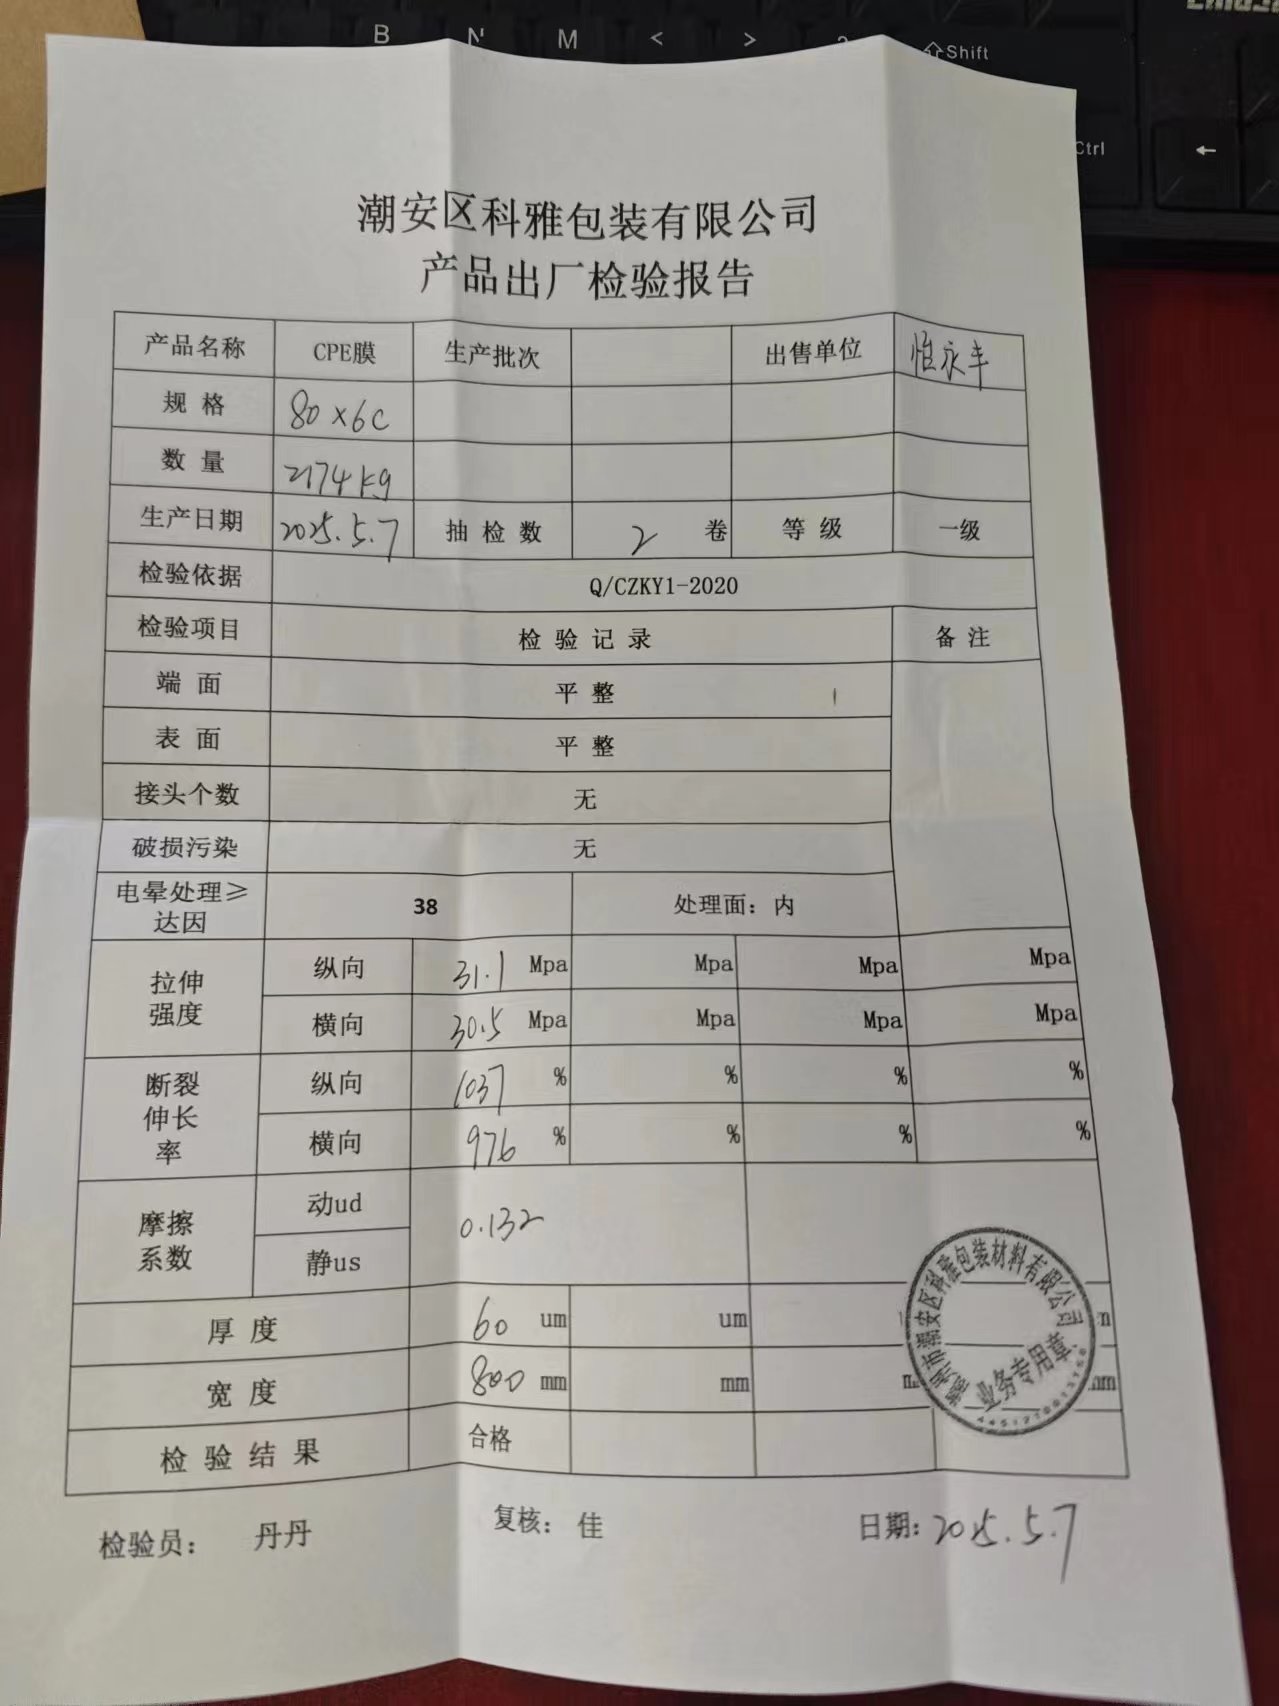 B N M < > ?
⇧Shift
Ctrl
←
潮安区科雅包装有限公司
产品出厂检验报告
产品名称 CPE膜 生产批次 出售单位 恒永丰
规 格 80×6C
数 量 2174kg
生产日期 2025.5.7 抽 检 数 2 卷 等 级 一级
检验依据 Q/CZKY1-2020
检验项目 检 验 记 录 备 注
端 面 平 整
表 面 平 整
接头个数 无
破损污染 无
电晕处理≥达因 38 处理面：内
拉伸强度 纵向 31.1 Mpa Mpa Mpa Mpa
横向 30.5 Mpa Mpa Mpa Mpa
断裂伸长率 纵向 1037 % % % %
横向 976 % % % %
摩擦系数 动ud 0.132
静us
厚 度 60 um um
宽 度 800 mm mm mm
检 验 结 果 合格
潮州市潮安区科雅包装材料有限公司
业务专用章
检验员： 丹丹 复核： 佳 日期：2025.5.7